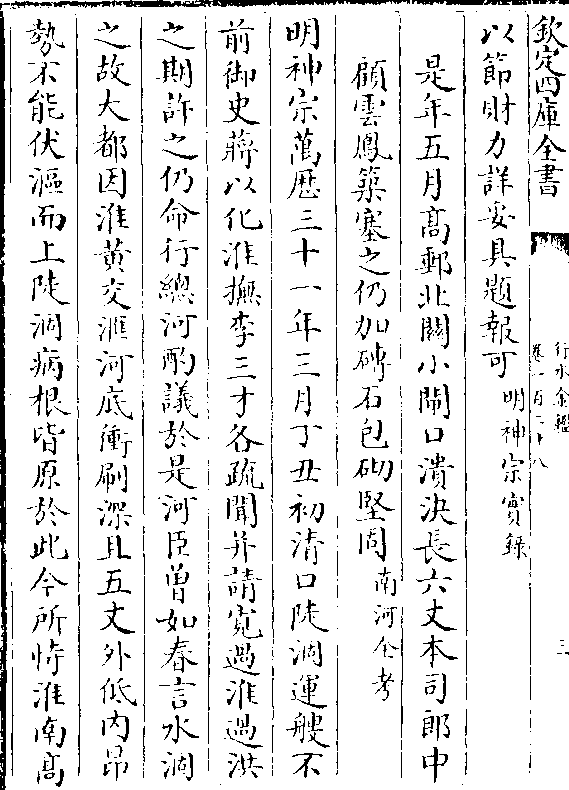 欽定四庫全書
行水金鑑
卷一百二十八
三
以節財力詳妥具題報可明神宗實錄
是年五月高郵北關小閘口潰決長六丈本司郎中
顧雲鳳築塞之仍加磚石包砌堅固南河全考
明神宗萬歷三十一年三月丁丑初清口陡涸運艘不
前御史蔣以化淮撫李三才各疏聞并請寛過淮過洪
之期許之仍命行總河酌議於是河臣曾如春言水涸
之故大都因淮黃交滙河底衝刷深且五丈外低内昂
勢不能伏漚而上陡涸病根皆原於此今所恃淮南高